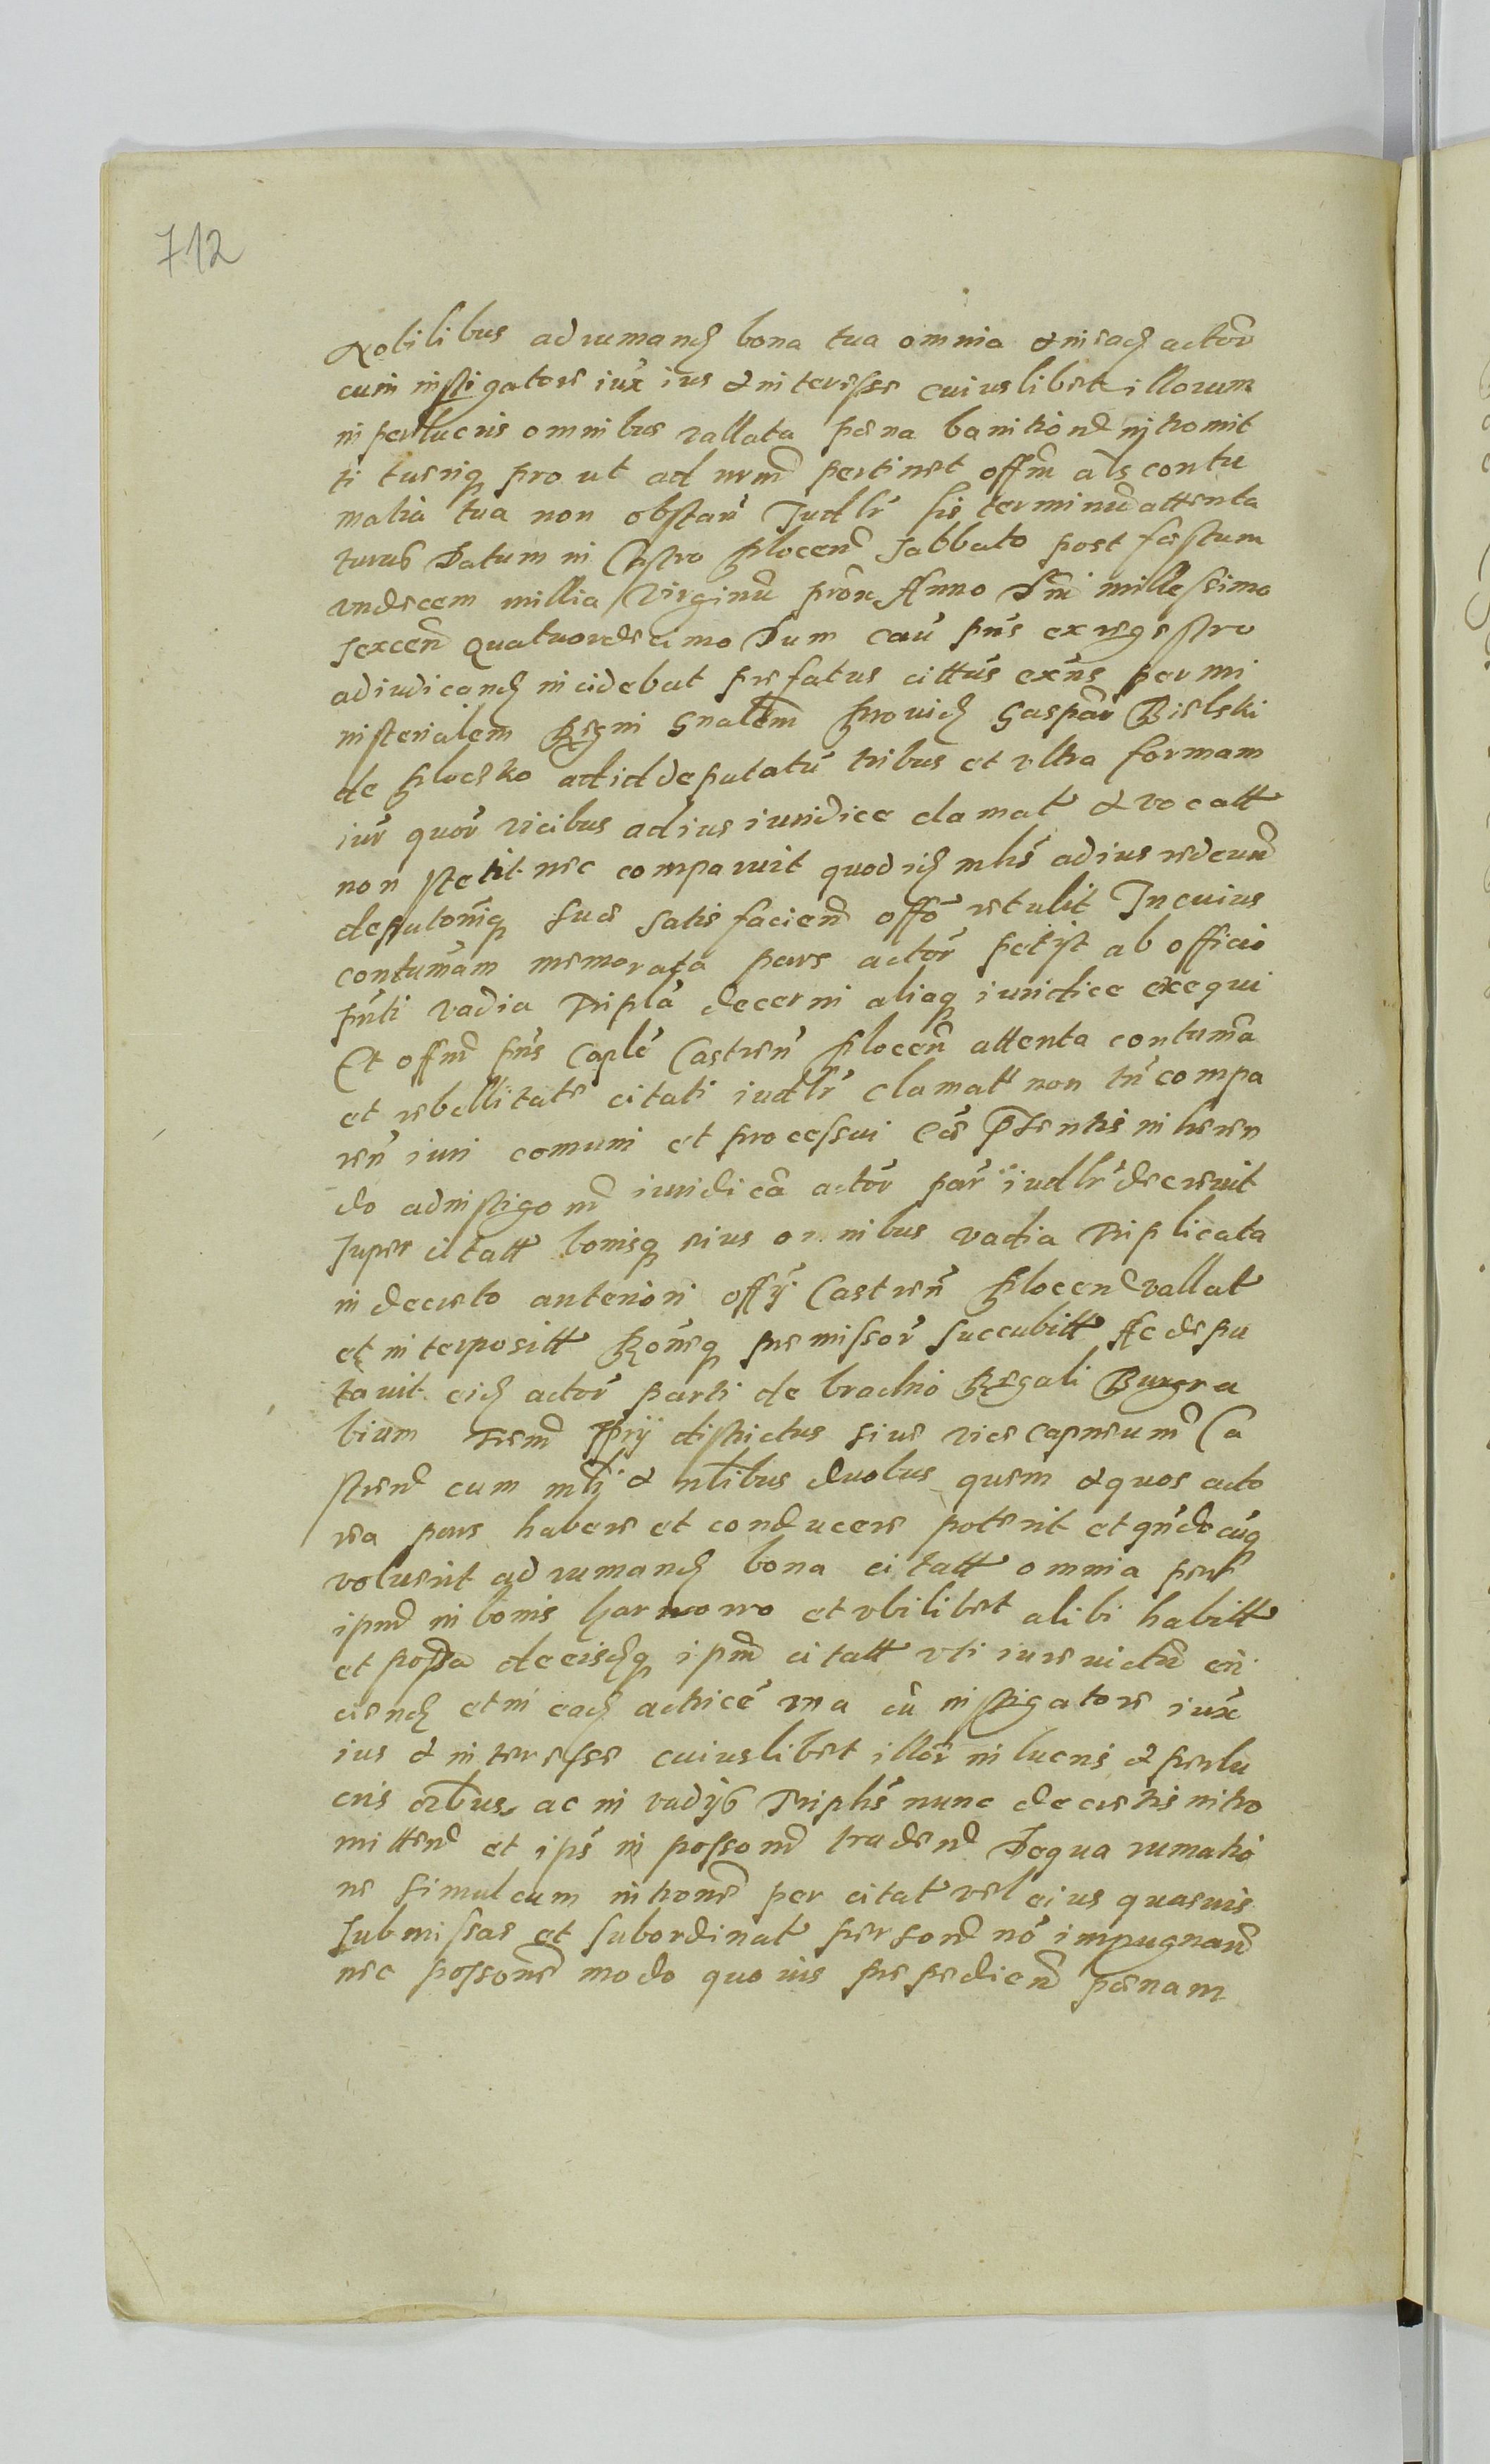 712
Nobilibus ad rumandȝ bona tua omnia & in eadȝ actor
cum instigatore iux ius & interesse cuiuslibet illorum
in perlucris omnibus vallata pœna banitionẽ intromit
ti tuerique pro ut ad nrm̃ pertinet offm̃ als contu
matia tua non obstań Iudlr̃ sis terminũ attenta
turus Datum in Castro Plocen̄ Sabbato post festum
vndecem millia Virginũ prox Anno Dm̄i millesimo
sexcen̄ quatuordecimo Dum cau pn̄s ex regestro
adiudicandȝ incidebat prefatus cittus exn̄s per mi
nisterialem Regni Gnalem Providȝ Gaspar Bielski
de Plocsko ad id deputatũ tribus et vltra formam
iur quor vicibus ad ius iuridice clamat & vocatt
non stetit nec comparuit quod idȝ mlis̄ ad ius redeund
deputoniqȝ sue satisfacien̄ offo retulit In cuius
contumam memorata pars actor petijt ab officio
pn̄ti vadia Tripla decerni aliaqȝ iuridice exequi
Et offm̄ pn̄s Caplē Castren̄ Plocen̄ attenta contuma
et rebellitate citati iudlr̃ clamatt non tn̄ compa
ren̄ iuri comuni et processui eæ ptentis inheren
do ad instigonē iuridica actor par iudlr̃ decrevit
super citatt bonisqȝ eius omnibus vadia Triplicata
in decreto anteriori offÿ Castren̄ Plocen̄ vallat
et interpositt Roneqȝ premissor succubitt Ac depu
tavit eidȝ actor parti de brachio Regali Burgra
bium Trem̄ ÿ districtus siue vice capneum̄ Ca
stren̄ cum mlÿ & nlibus duobus quem & quos acto
rea pars habere et conducere poterit et qn̄docunqȝ
voluerit ad rumandȝ bona citatt omnia per
ipm̄ in bonis Harnowo et vbilibet alibi habitt
et possa deeisdȝqȝ ipm̄ citatt vti iure victũ eij
ciendȝ et in eadȝ actrice vna cũ instigatore iux
ius & interesse cuiuslibet illor in lucris & perlu
cris oibus ac in vadijs Triplis nunc decretis intro
mitten̄ et ips in posson̄ traden̄ De qua rumatio
ne simul cum introne per citat vel eius quasuis
submissas et subordinat person̄ nō impugnan̄
nec possone modo quouis prepedien̄ pœnam